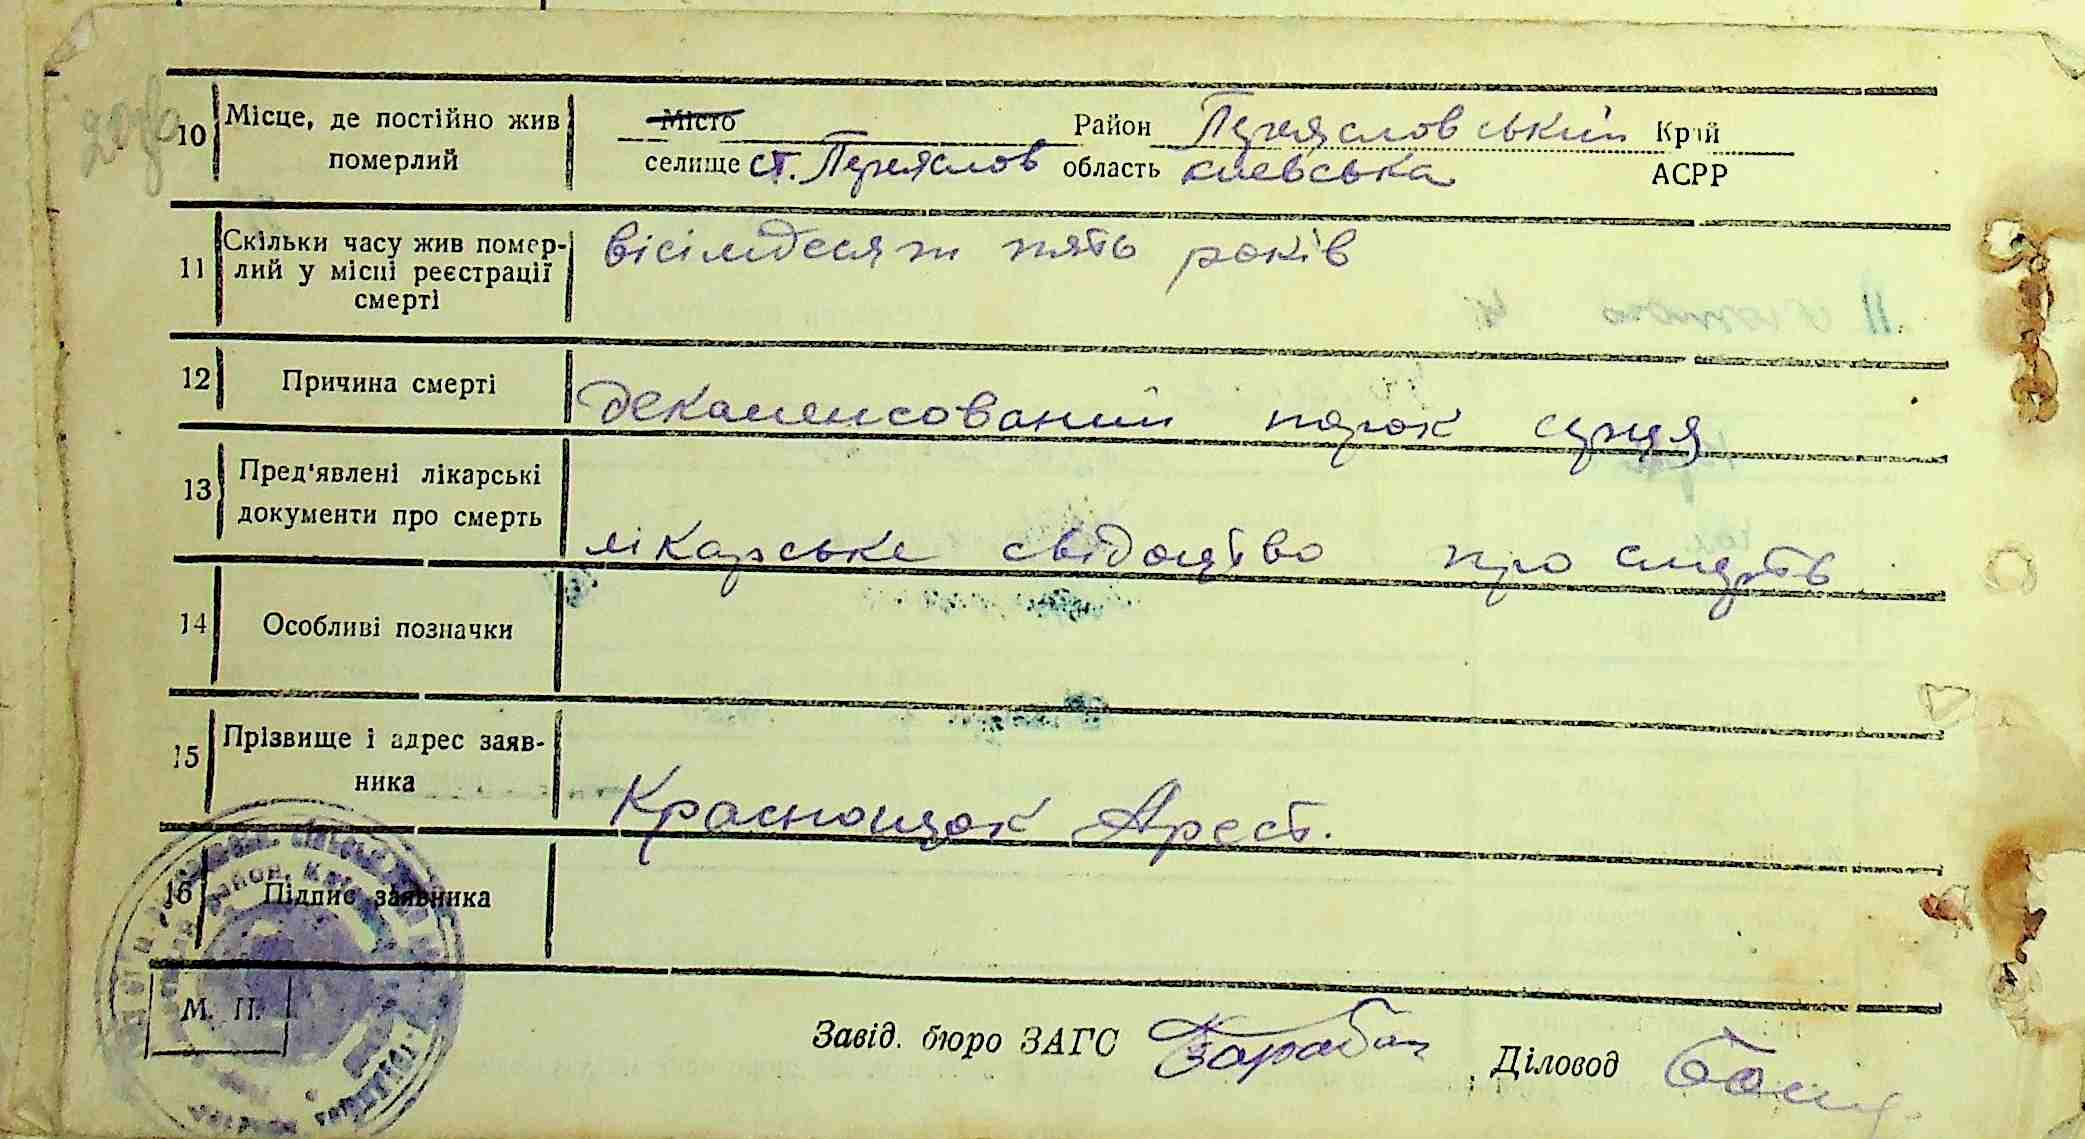 10 Місце, де постійно жив померлий
Місто Район Переясловський Край
селище ст. Переяслов область киевська АСРР
11 Скільки часу жив помер-
лий у місці реєстрації
смерті
вісімдесят пять років
12 Причина смерті
декаменсований порок серця
13 Пред'явлені лікарські
документи про смерть
лікарське свідоцтво про смерть
14 Особливі позначки
15 Прізвище і адрес заяв-
ника
Краснощок Арест.
16 Підпис заявника
М. П.
Завід. бюро ЗАГС Барабаш Діловод